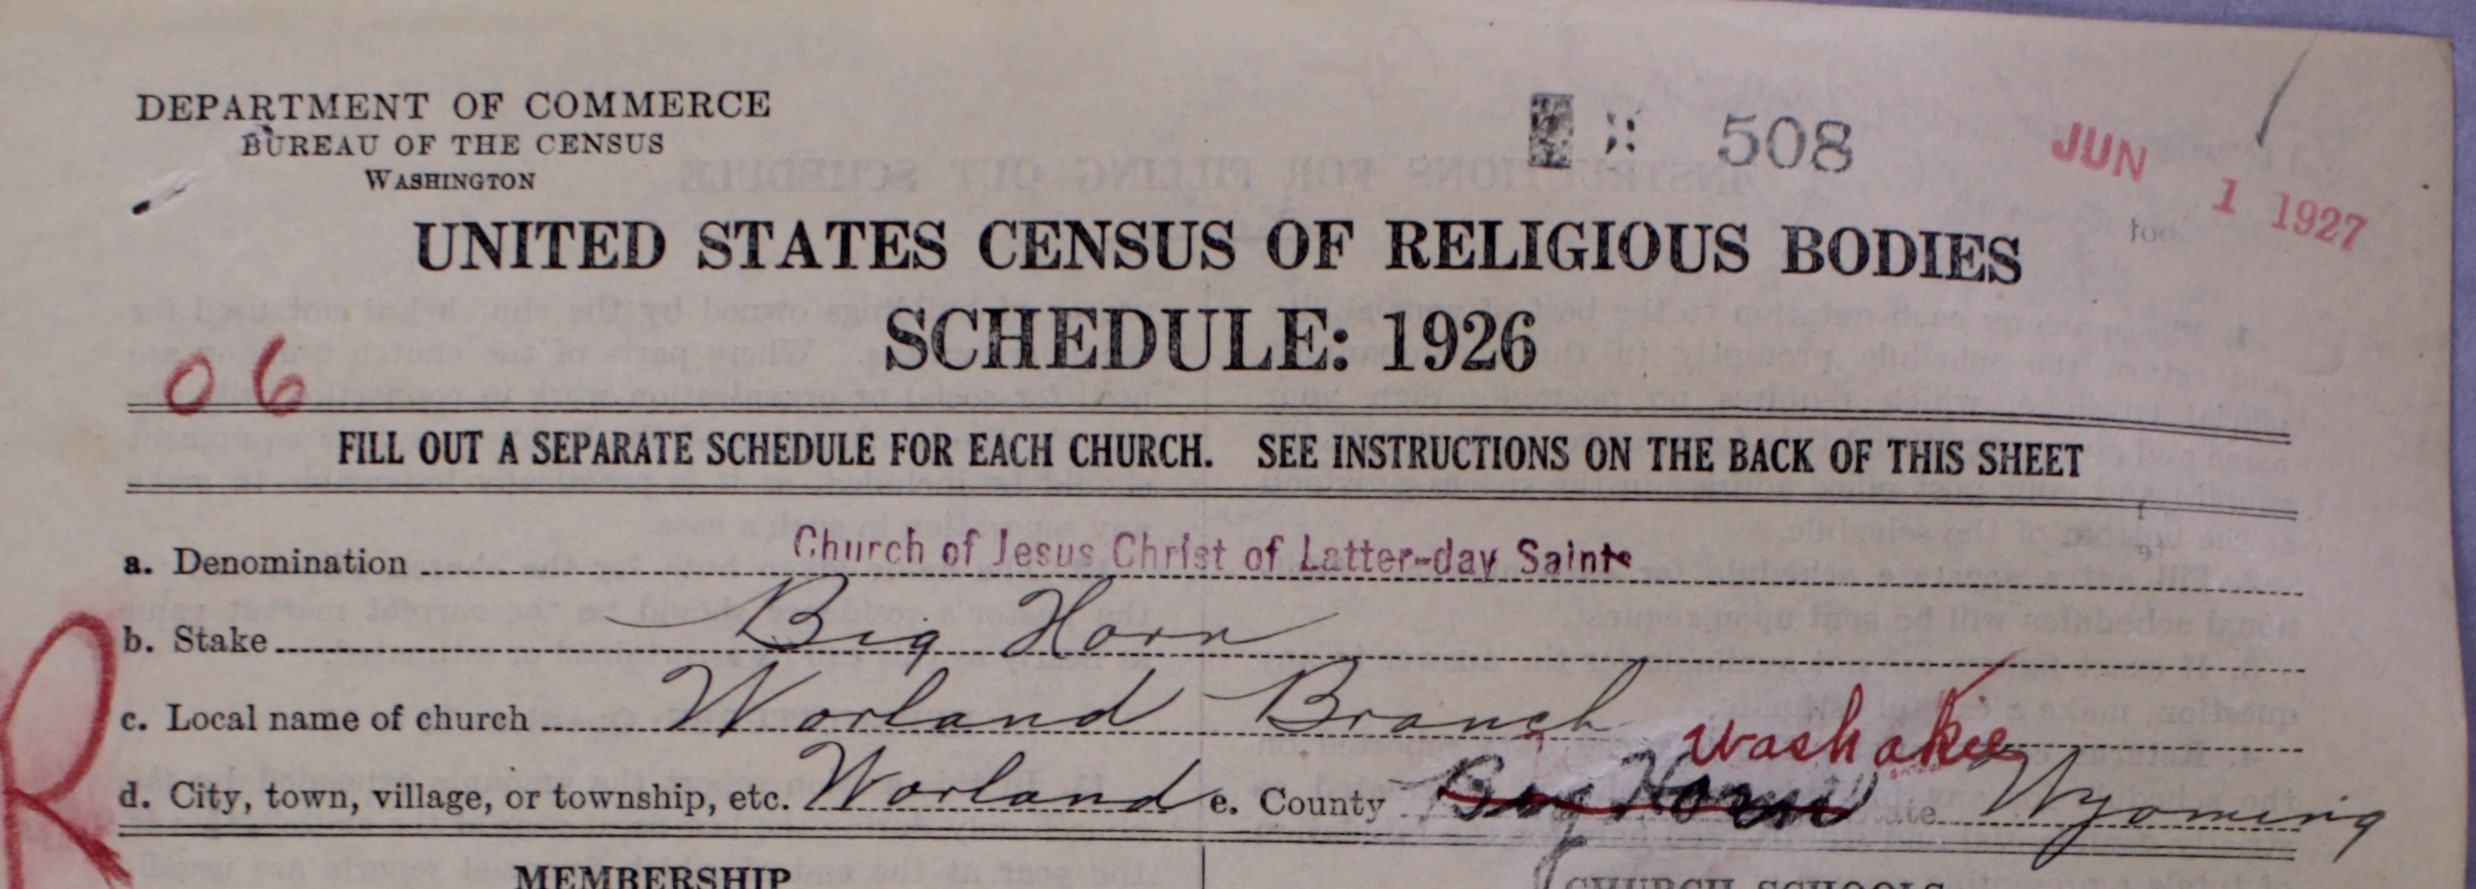 DEPARTMENT OF COMMERCE
BUREAU OF THE CENSUS
WASHINGTON
508
JUN 1 1927
UNITED STATES CENSUS OF RELIGIOUS BODIES
SCHEDULE: 1926
06
FILL OUT A SEPARATE SCHEDULE FOR EACH CHURCH. SEE INSTRUCTIONS ON THE BACK OF THIS SHEET
a. Denomination Church of Jesus Christ of Latter-day Saints
b. Stake Big Horn
R
c. Local name of church Worland Branch
Washakie
d. City, town, village, or township, etc. Worland e. County Big Horn State Wyoming
MEMBERSHIP
CHURCH SCHOOLS